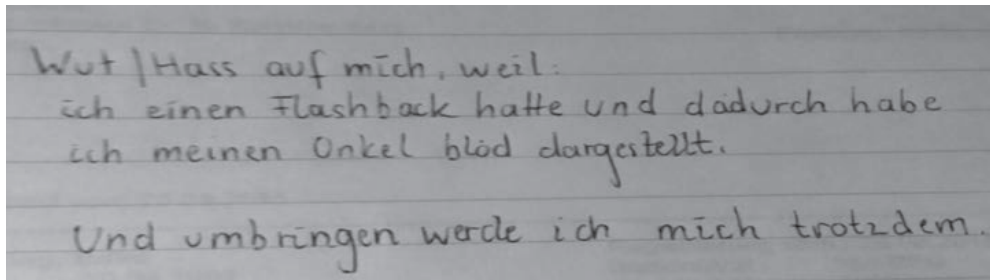 Wut | Hass auf mich, weil:
ich einen Flashback hatte und dadurch habe
ich meinen Onkel blöd dargestellt.
Und umbringen werde ich mich trotzdem.